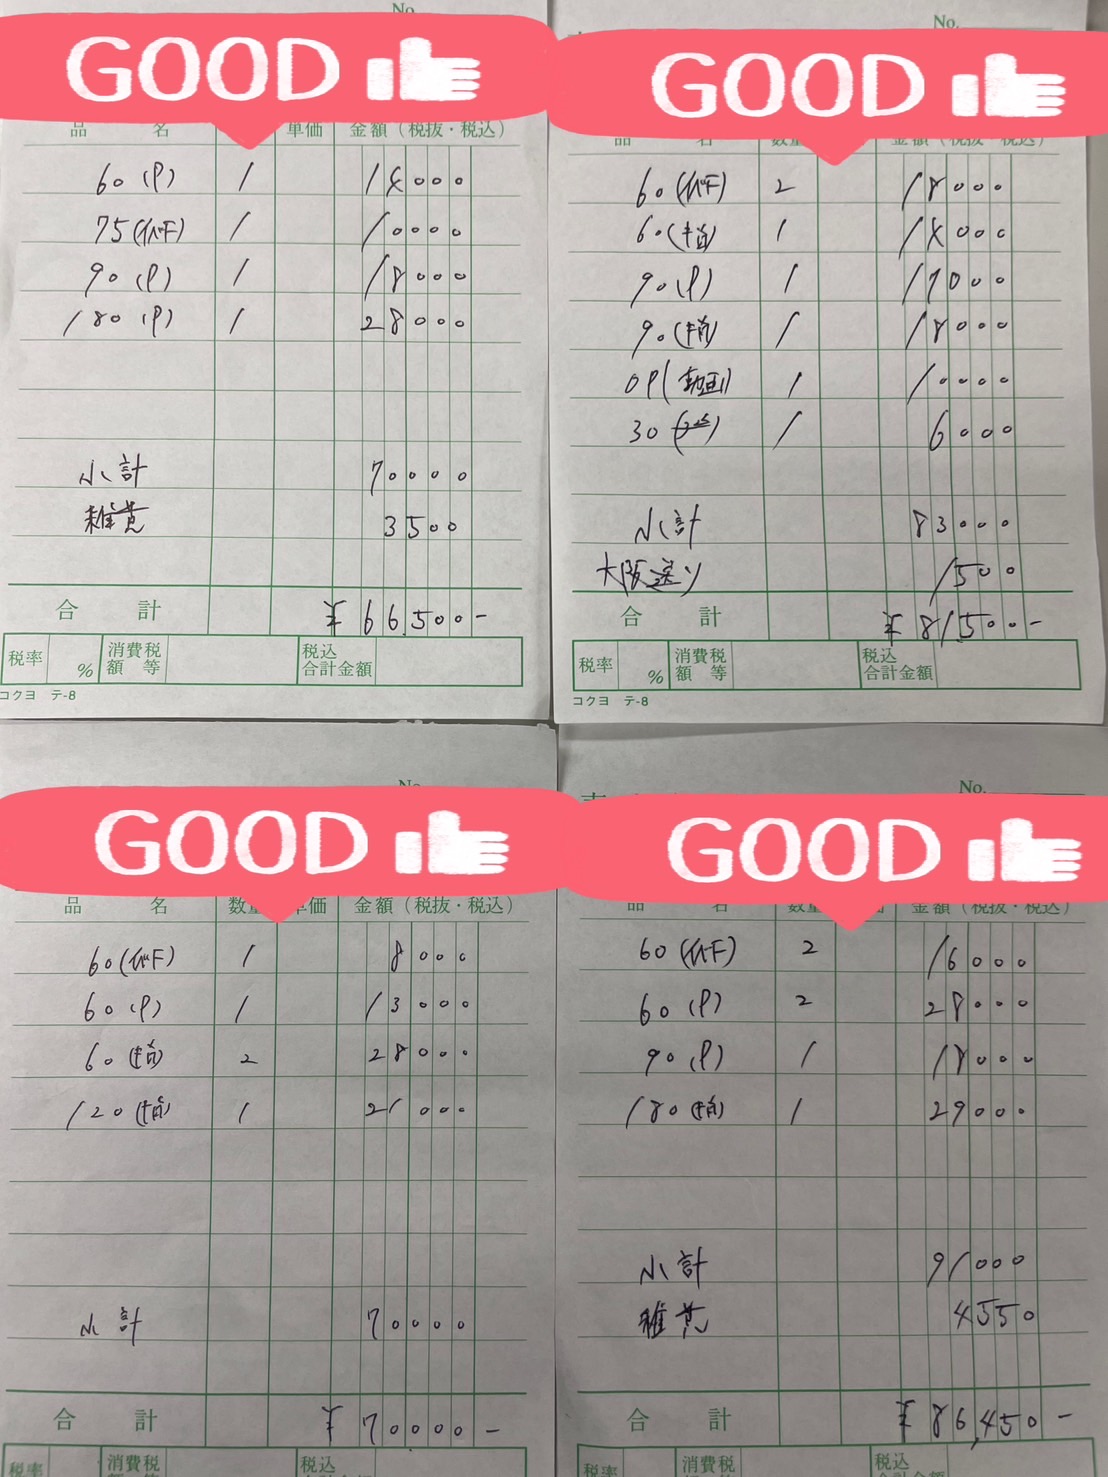 No.
GOOD
品 名 単価 金額（税抜・税込）
60 (P) 1 14000
75 1 10000
90 (P) 1 18000
180 (P) 1 28000
小計 70000
雑費 3500
合 計 ¥66,500-
税率 % 消費税額等 税込合計金額
コクヨ テ-8
No.
GOOD
品 名 数量 金額（税抜・税込）
60 2 18000
60 1 14000
90 (P) 1 17000
90 1 18000
OP(動画) 1 10000
30 1 6000
小計 83000
大阪送り 1500
合 計 ¥81,500-
税率 % 消費税額等 税込合計金額
コクヨ テ-8
No.
GOOD
品 名 数量 単価 金額（税抜・税込）
60 1 8000
60 (P) 1 13000
60 2 28000
120 1 21000
小計 70000
合 計 ¥70000-
税率 消費税 税込
No.
GOOD
品 名 数量 金額（税抜・税込）
60 2 16000
60 (P) 2 28000
90 (P) 1 18000
180 1 29000
小計 91000
雑費 4550
合 計 ¥86,450-
税率 消費税 税込